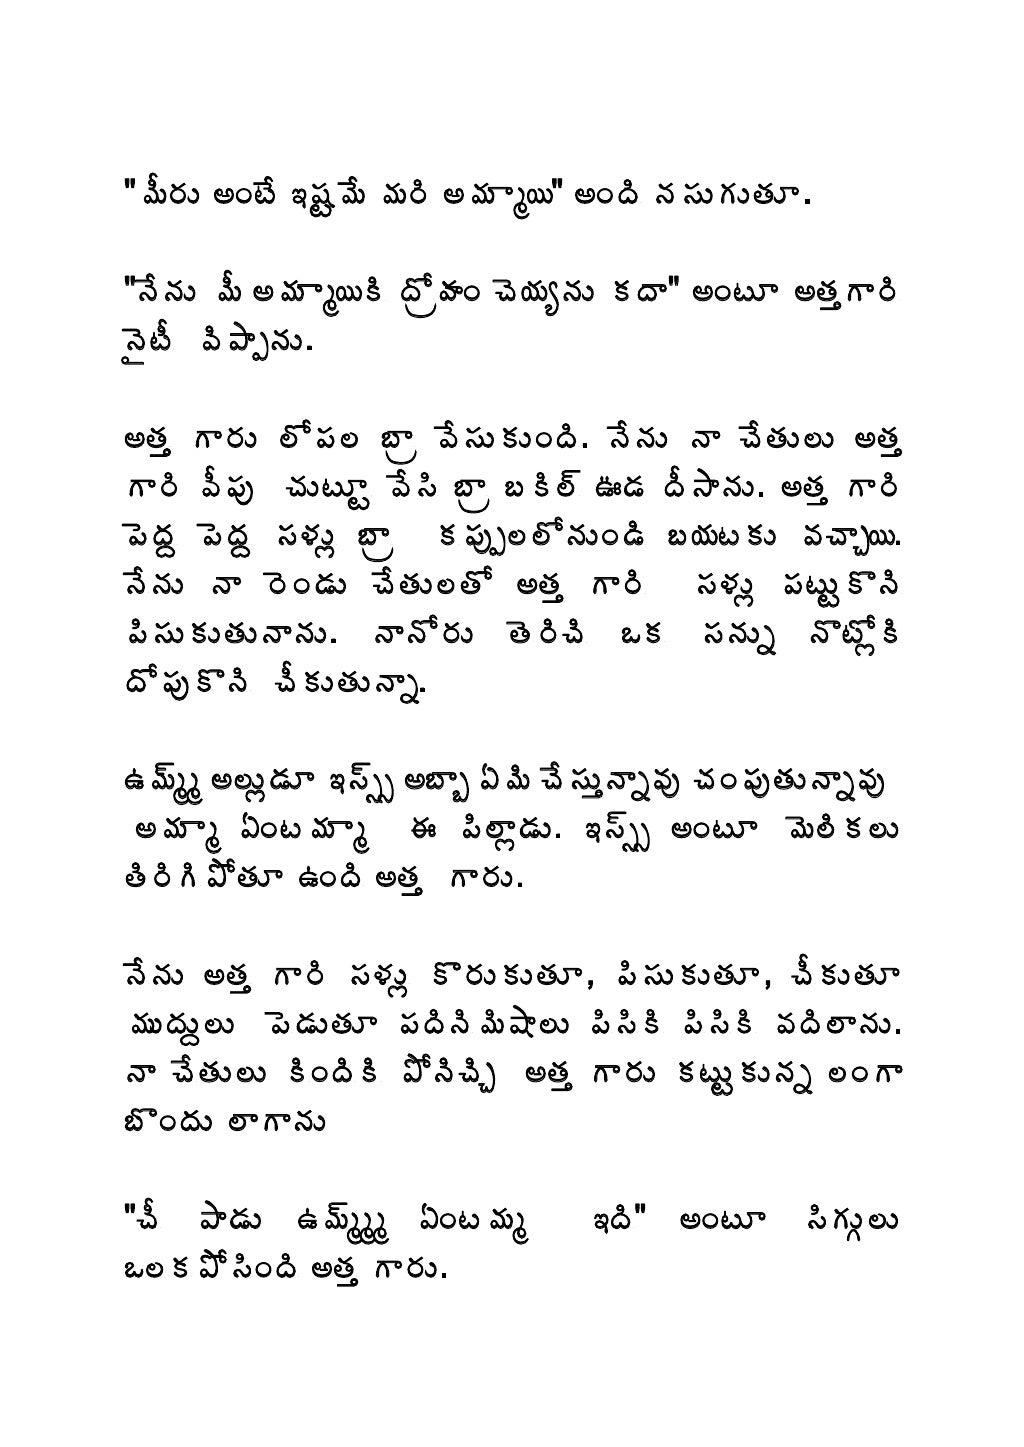 "మీరు అంటే ఇష్టమే మరి అమ్మాయి" అంది నసుగుతూ.
"నేను మీ అమ్మాయికి ద్రోహం చెయ్యను కదా" అంటూ అత్తగారి
నైటీ విప్పాను.
అత్త గారు లోపల బ్రా వేసుకుంది. నేను నా చేతులు అత్త
గారి వీపు చుట్టూ వేసి బ్రా బకిల్ ఊడ దీసాను. అత్త గారి
పెద్ద పెద్ద సళ్లు బ్రా కప్పులలోనుండి బయటకు వచ్చాయి.
నేను నా రెండు చేతులతో అత్త గారి సళ్లు పట్టుకొని
పిసుకుతునాను. నానోరు తెరిచి ఒక సన్ను నొట్లోకి
దోపుకొని చీకుతున్నా.
ఉమ్మ్మ్ అల్లుడూ ఇస్స్స్ అబ్బా ఏమి చేస్తున్నావు చంపుతున్నావు
అమ్మా ఏంటమ్మా ఈ పిల్లాడు. ఇస్స్స్ అంటూ మెలికలు
తిరిగిపోతూ ఉంది అత్త గారు.
నేను అత్త గారి సళ్లు కొరుకుతూ, పిసుకుతూ, చీకుతూ
ముద్దులు పెడుతూ పదినిమిషాలు పిసికి పిసికి వదిలాను.
నా చేతులు కిందికి పోనిచ్చి అత్త గారు కట్టుకున్న లంగా
బొందు లాగాను
"చీ పాడు ఉమ్మ్మ్మ్ ఏంటమ్మ ఇది" అంటూ సిగ్గులు
ఒలకపోసింది అత్త గారు.